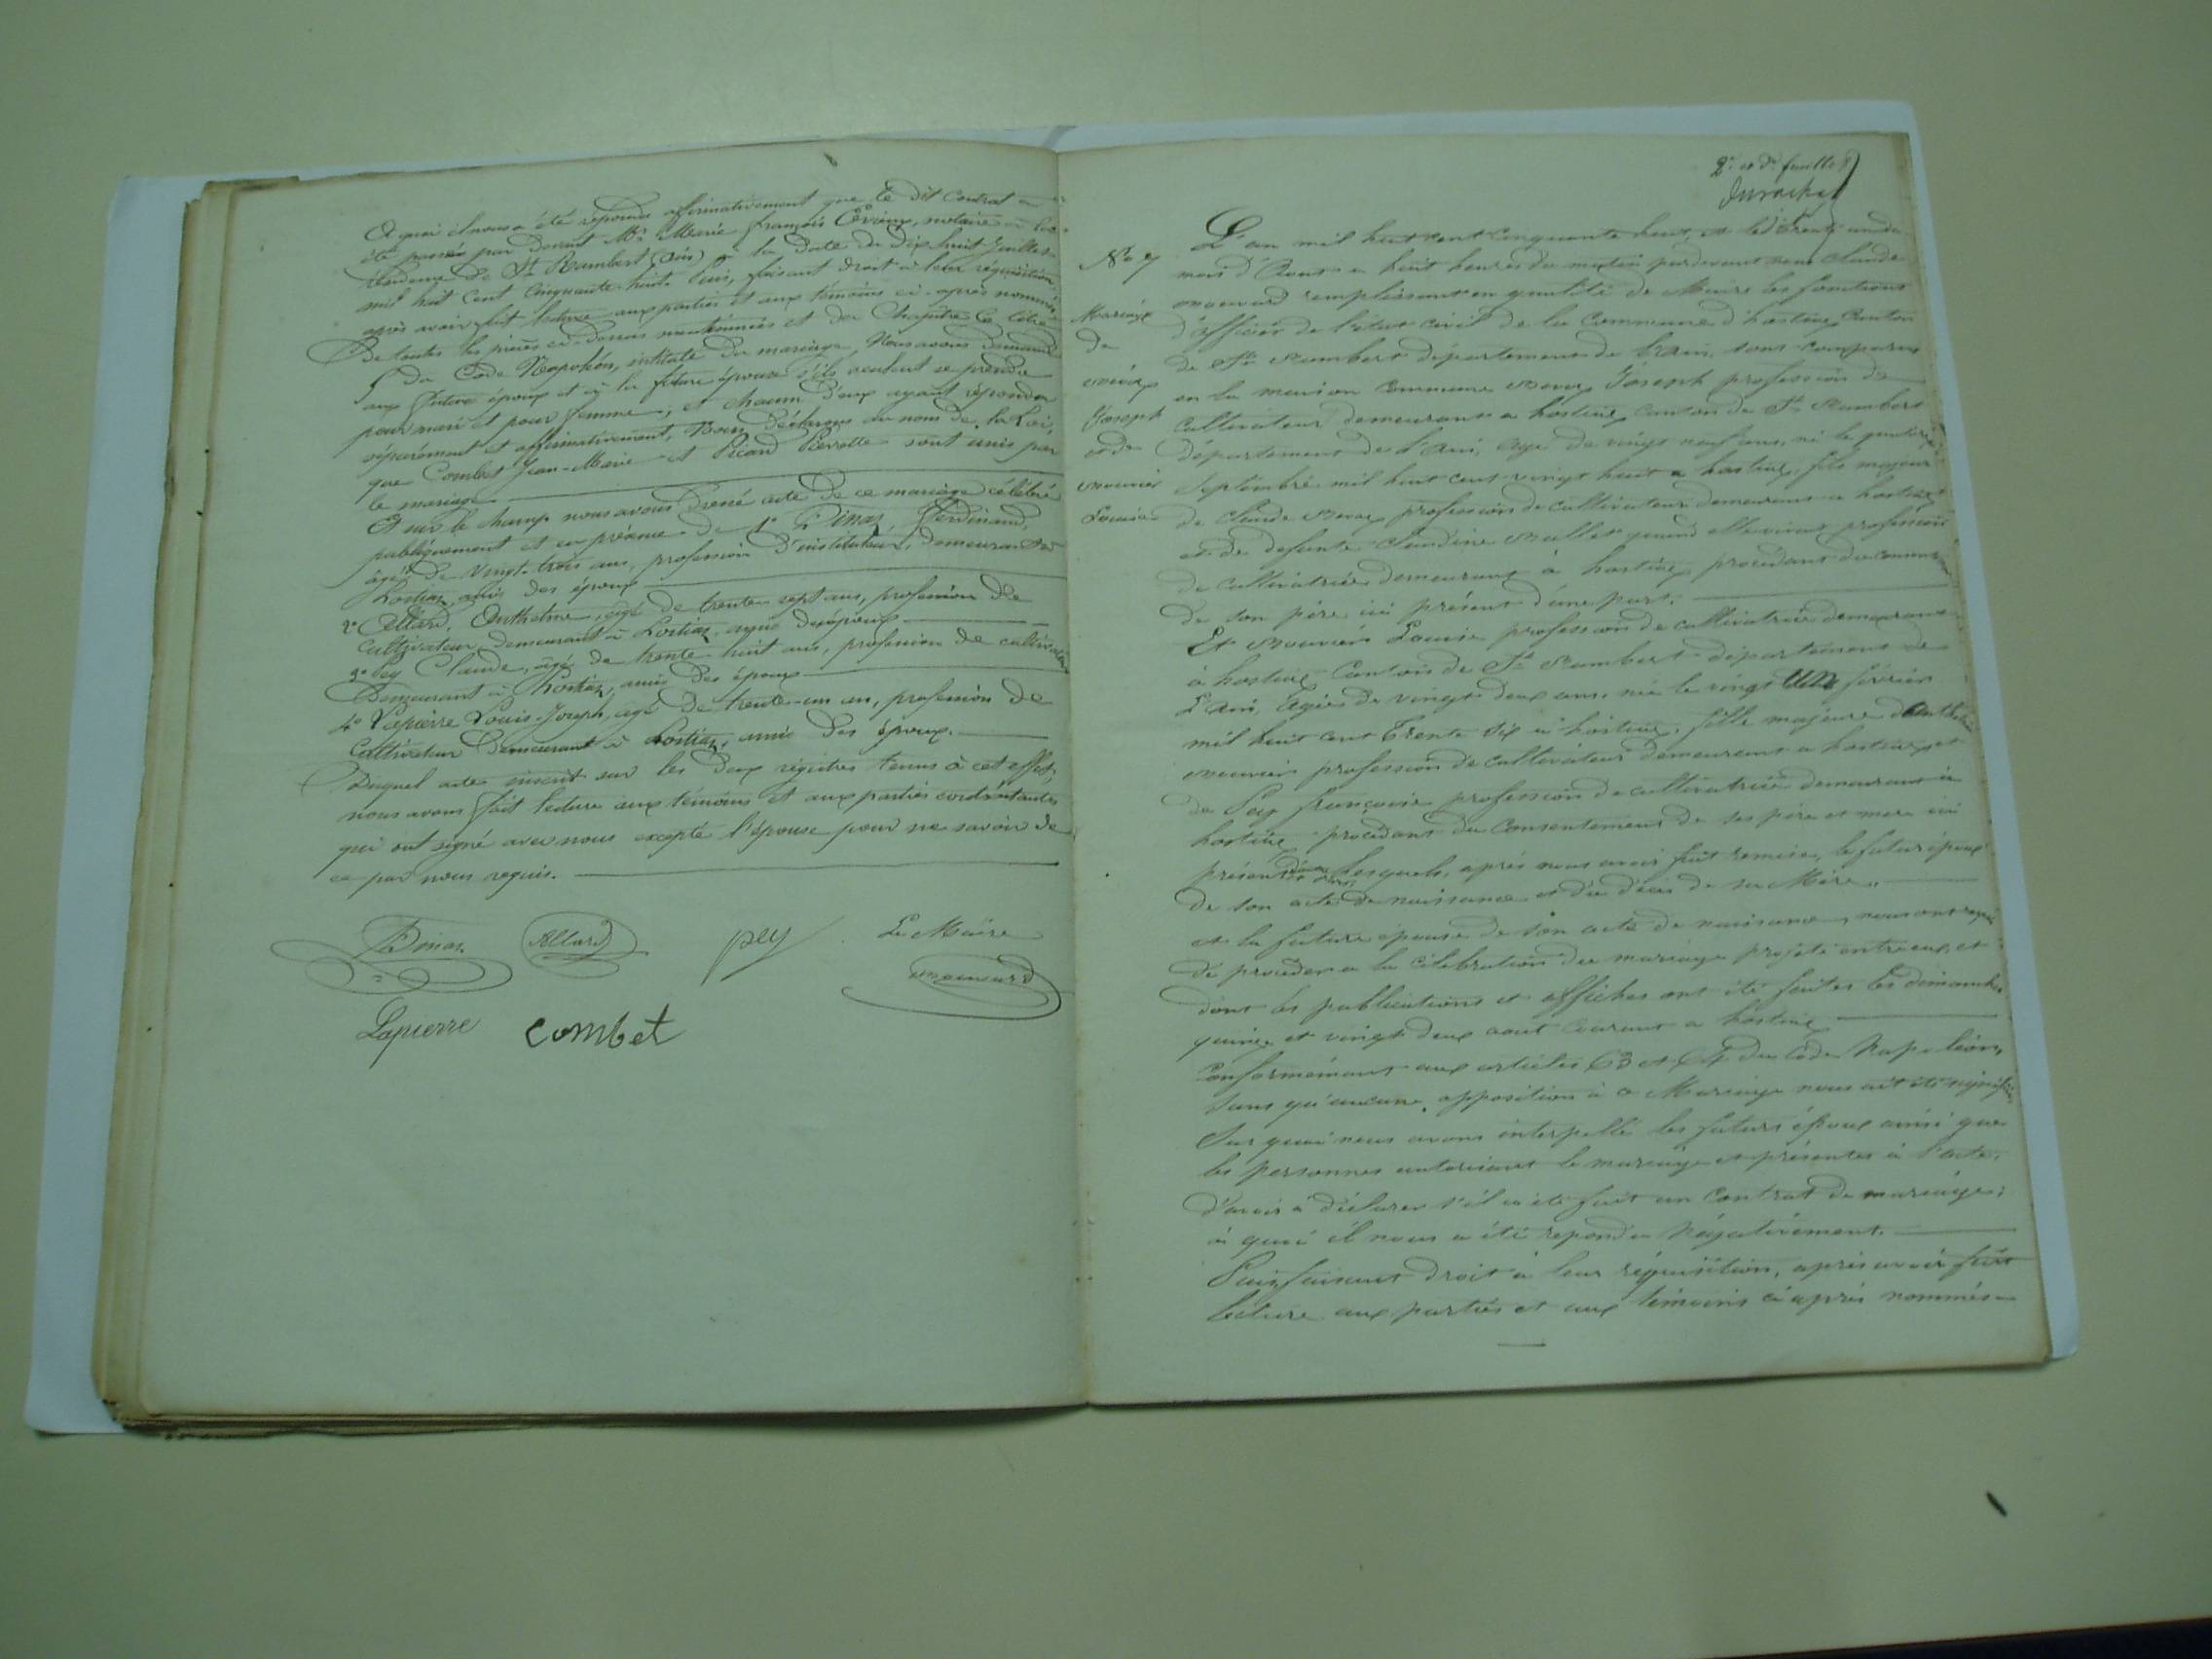 A quoi il nous a été répondu affirmativement que le dit contrat a
été passé par devant Mr Marie françois notaire à la
résidence de St Rambert (Ain) à la date du dix huit Juillet
mil huit cent cinquante-huit. Puis, faisant droit à leur réquisition
après avoir fait lecture aux parties et aux témoins ci-après nommés
De toutes les pièces ci-dessus mentionnées et du Chapitre 6 titre
5 du Code Napoléon, intitulé du mariage, Nous avons demandé
aux futur époux et à la future épouse s'ils veulent se prendre
pour mari et pour femme, et chacun d'eux ayant répondu
séparément et affirmativement, Nous déclarons au nom de la Loi,
que Combet Jean-Marie et Picard Pierrette sont unis par
le mariage
Et sur le champ nous avons dressé acte de ce mariage célébré
publiquement et en présence de 1° Dinaz, Ferdinand,
âgé de vingt-trois ans, profession d'instituteur, demeurant à
hostiaz, amis des époux
2° Allard, Anthelme, âgé de trente sept ans, profession de
Cultivateur, demeurant à hostiaz, amis des époux
3° Pey Claude, âgé de trente huit ans, profession de cultivateur
Demeurant à hostiaz, amis des époux
4° Lapierre Louis-Joseph, âgé de trente-un an, profession de
Cultivateur Demeurant à hostiaz, amie des époux.
Duquel acte inscrit sur les deux registres tenus à cet effet,
nous avons fait lecture aux témoins et aux parties contractantes
qui ont signé avec nous excepté l'épouse pour ne savoir de
ce par nous requis.
Dinaz Allard pey Le Maire
Lapierre combet
2e et de feuillet
No 7
Mariage
de
Joseph
et de
Louise
L'an mil huit cent cinquante huit, et le trente un du
mois d'Aout a huit heures du matin pardevant nous Claude
remplissant en qualité de Maire les fonctions
d'officier de l'état civil de la Commune d'hostiaz Canton
de St Rambert département de l'Ain, sont comparus
en la maison commune Joseph profession de
cultivateur demeurant a hostiaz canton de St Rambert
département de l'Ain, âgé de vingt neuf ans, né le quatorze
Septembre mil huit cent vingt huit a hostiaz, fils majeur
de Claude profession de cultivateur demeurant a hostiaz
et de defunte Claudine quand elle vivait profession
de cultivatrice demeurant à hostiaz procédant du consentement
de son père ici présent d'une part.
Et Louise profession de cultivatrice demeurant
à hostiaz Canton de St Rambert département de
l'Ain, âgée de vingt deux ans, née le vingt un février
mil huit cent trente six à hostiaz, fille majeure d'anthelme
profession de cultivateur demeurant a hostiaz et
de Pey françoise profession de cultivatrice demeurant à
hostiaz procédant du consentement de ses père et mère ici
présents Lesquels, après nous avoir fait remise, le futur époux
de son acte de naissance et du décès de sa Mère,
et la future épouse de son acte de naissance, nous ont requis
de procéder a la célébration du mariage projeté entre eux et
dont les publications et affiches ont été faites les dimanches
quinze et vingt deux aout courant a hostiaz
Conformément aux articles 63 et 64 du Code Napoléon,
sans qu'aucune opposition à ce Mariage nous ait été signifiée
Sur quoi nous avons interpellé les futurs époux ainsi que
les personnes autorisant le mariage et présentes à l'acte,
d'avoir à déclarer s'il a été fait un Contrat de mariage;
à quoi il nous a été répondu négativement.
Puis faisant droit à leur réquisition, après avoir fait
lecture aux parties et aux témoins ci après nommés